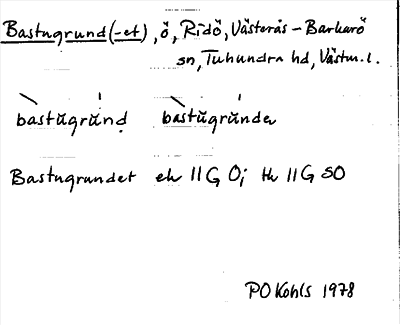 Bastugrund(-et), ö, Ridö, Västerås-Barkarö
sn, Tuhundra hd, Västm. l.
bastŭgrŭnḍ bastŭgrŭnden
Bastugrundet ek 11G O; tk 11G SO
PO Kohls 1978